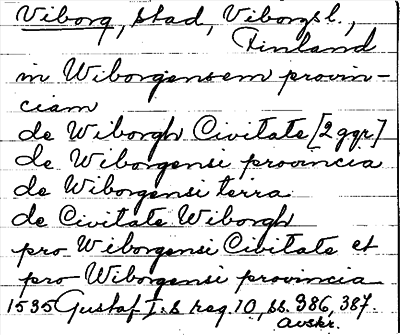 Viborg, stad, Viborgsl.,
Finland
in Wiborgensem provin-
ciam
de Wiborgh Civitate [2 ggr]
de Wiborgensi provincia
de Wiborgensi terra
de Civitate Wiborgh
pro Wiborgensi Civitate et
pro Wiborgensi provincia
1535 Gustaf I:s reg. 10, ss. 386, 387.
avskr.